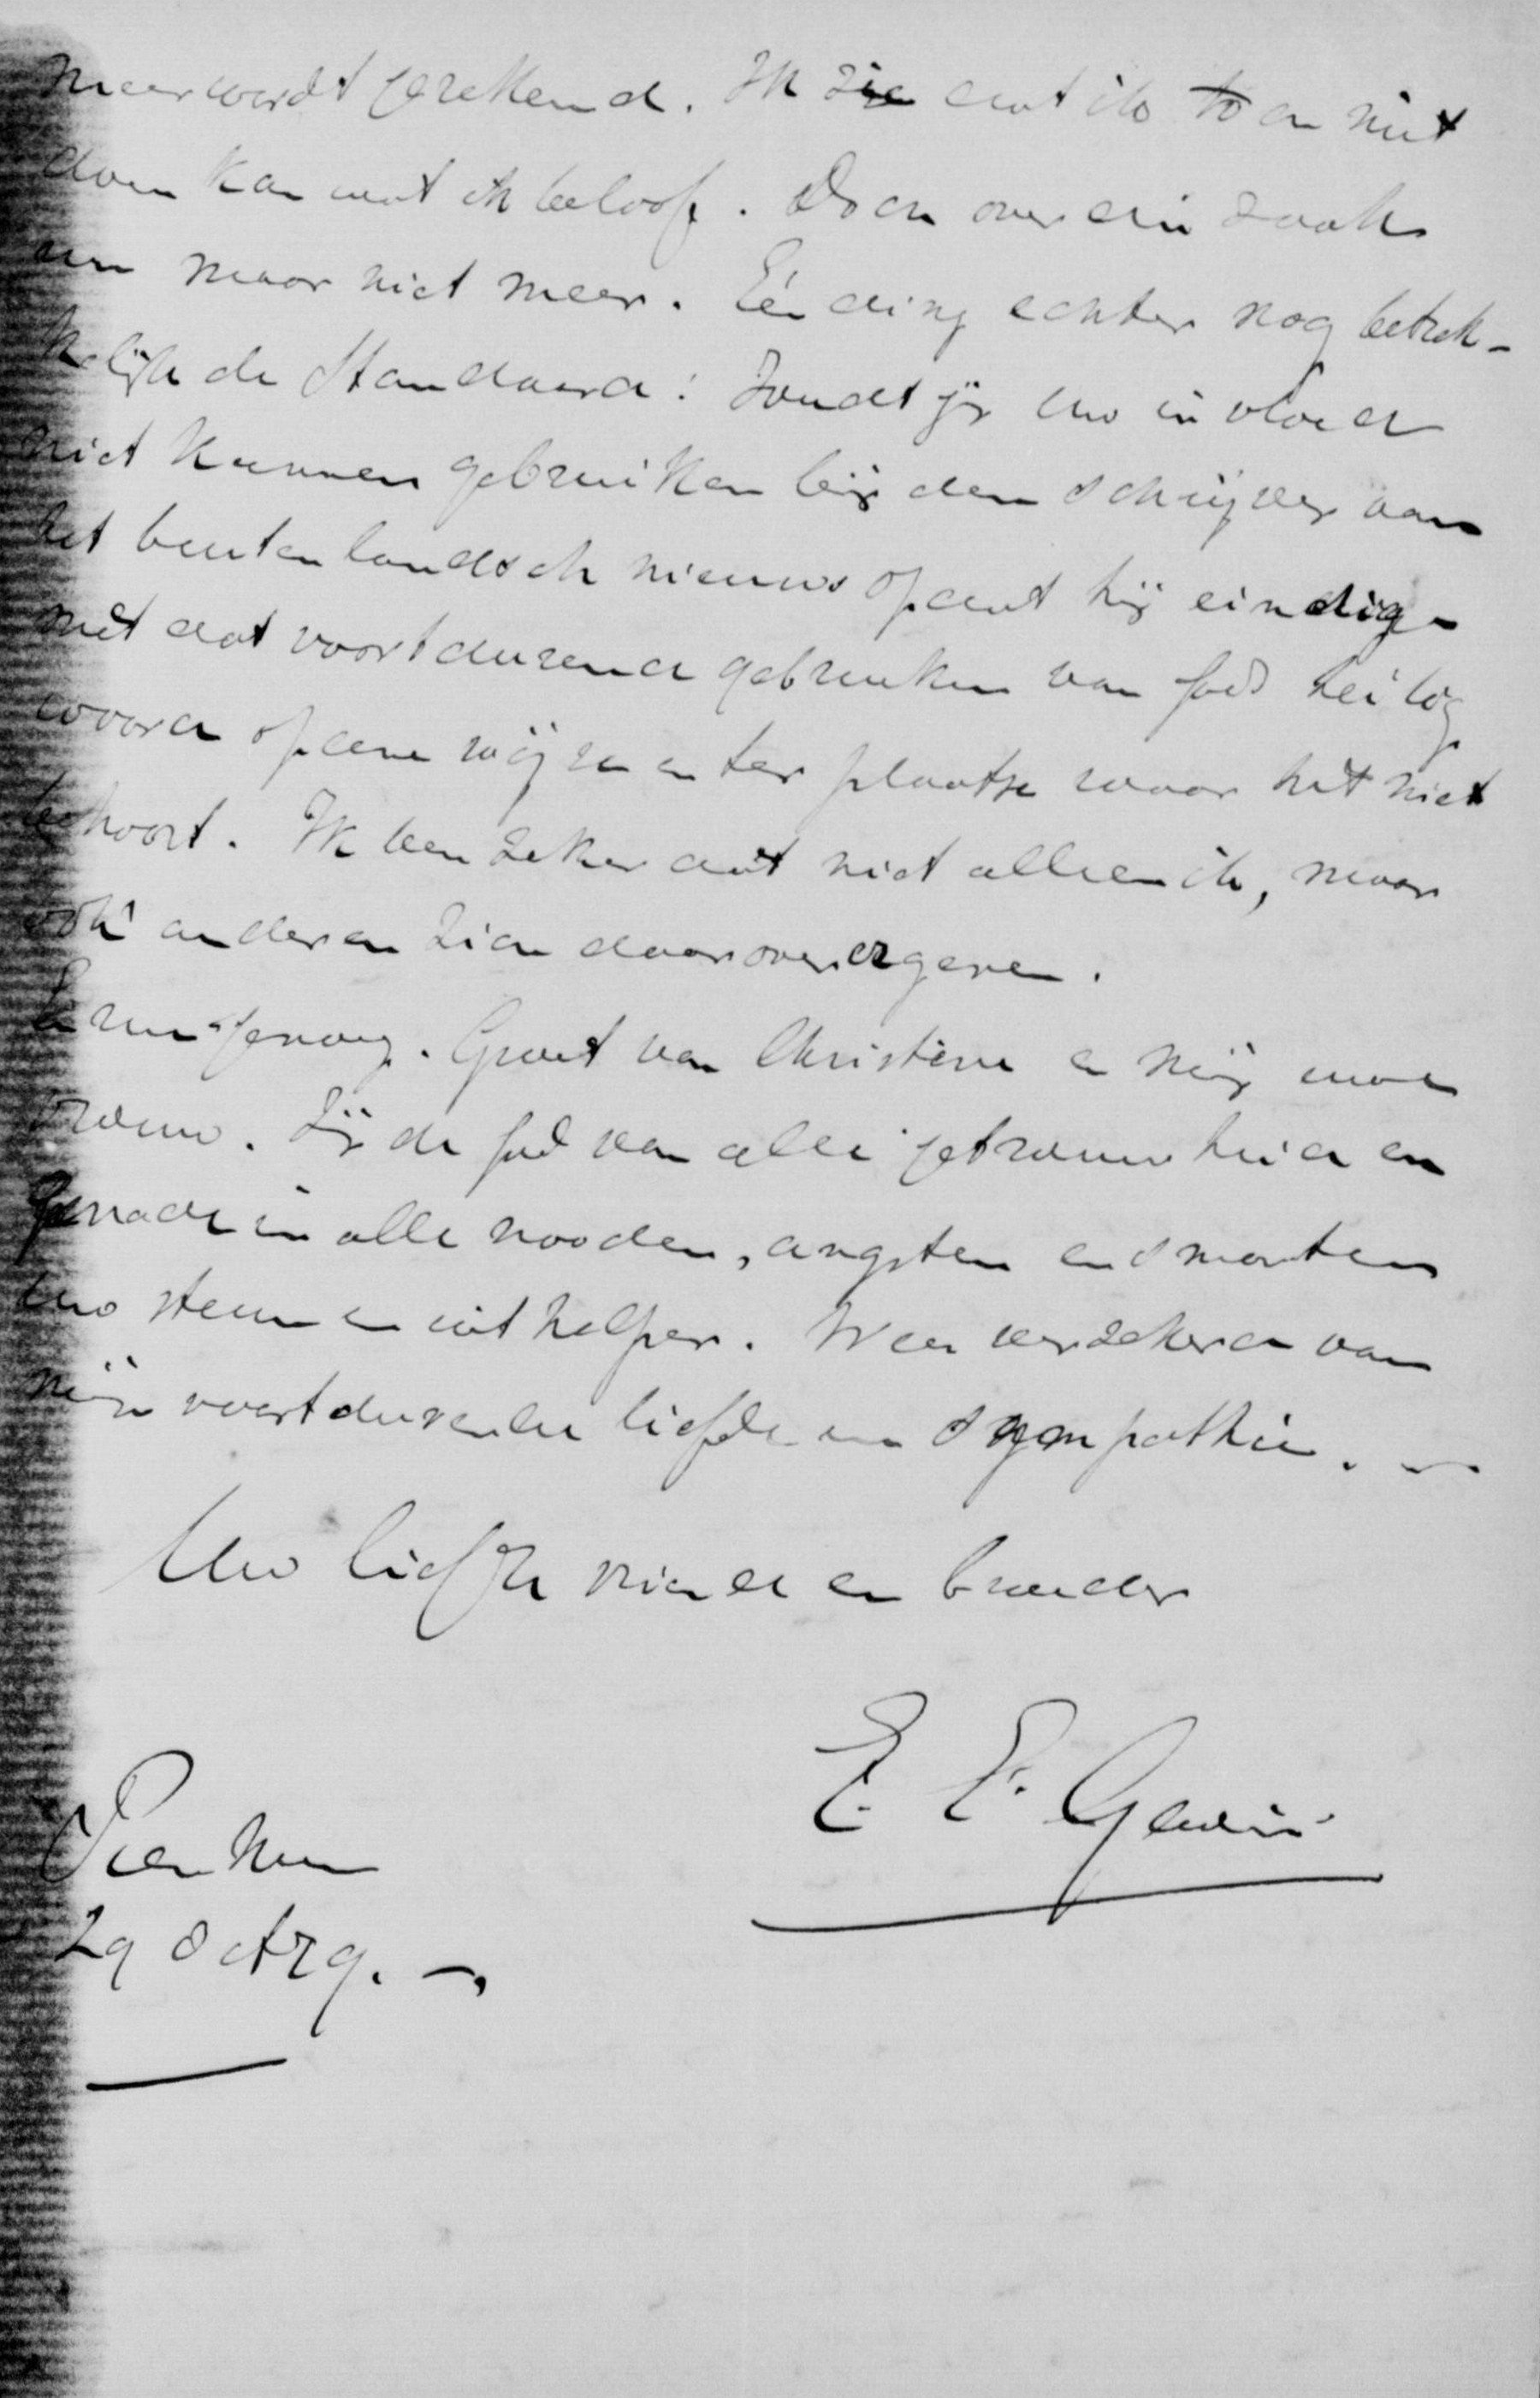 meer wordt gerekend. Ik zie dat ik toen niet
doen kan wat ik beloof. Doch over die zaak
nu maar niet meer. Eén ding echter nog betrek-
kelijk de Standaard: Zoudt gij uw invloed
niet kunnen gebruiken bij den schrijver van
het buitenlandsch nieuws opdat hij eindige
met dat voortdurend gebruiken van Gods heilig
woord op eene wijze en ter plaatse waar het niet
behoort. Ik ben zeker dat niet alleen ik, maar
ook anderen zich daarover ergeren.
En nu genoeg. Groet van Christine en mij uwe
vrouw. Zij de God van alle getrouwheid en
genade in alle nooden, angsten en smarten
uw steun en uithelper. Wees verzekerd van
mijn voortdurende liefde en sympathie. –
Uw liefh vriend en broeder
E. E. Gewin
Pienhum
29 Oct 79. –